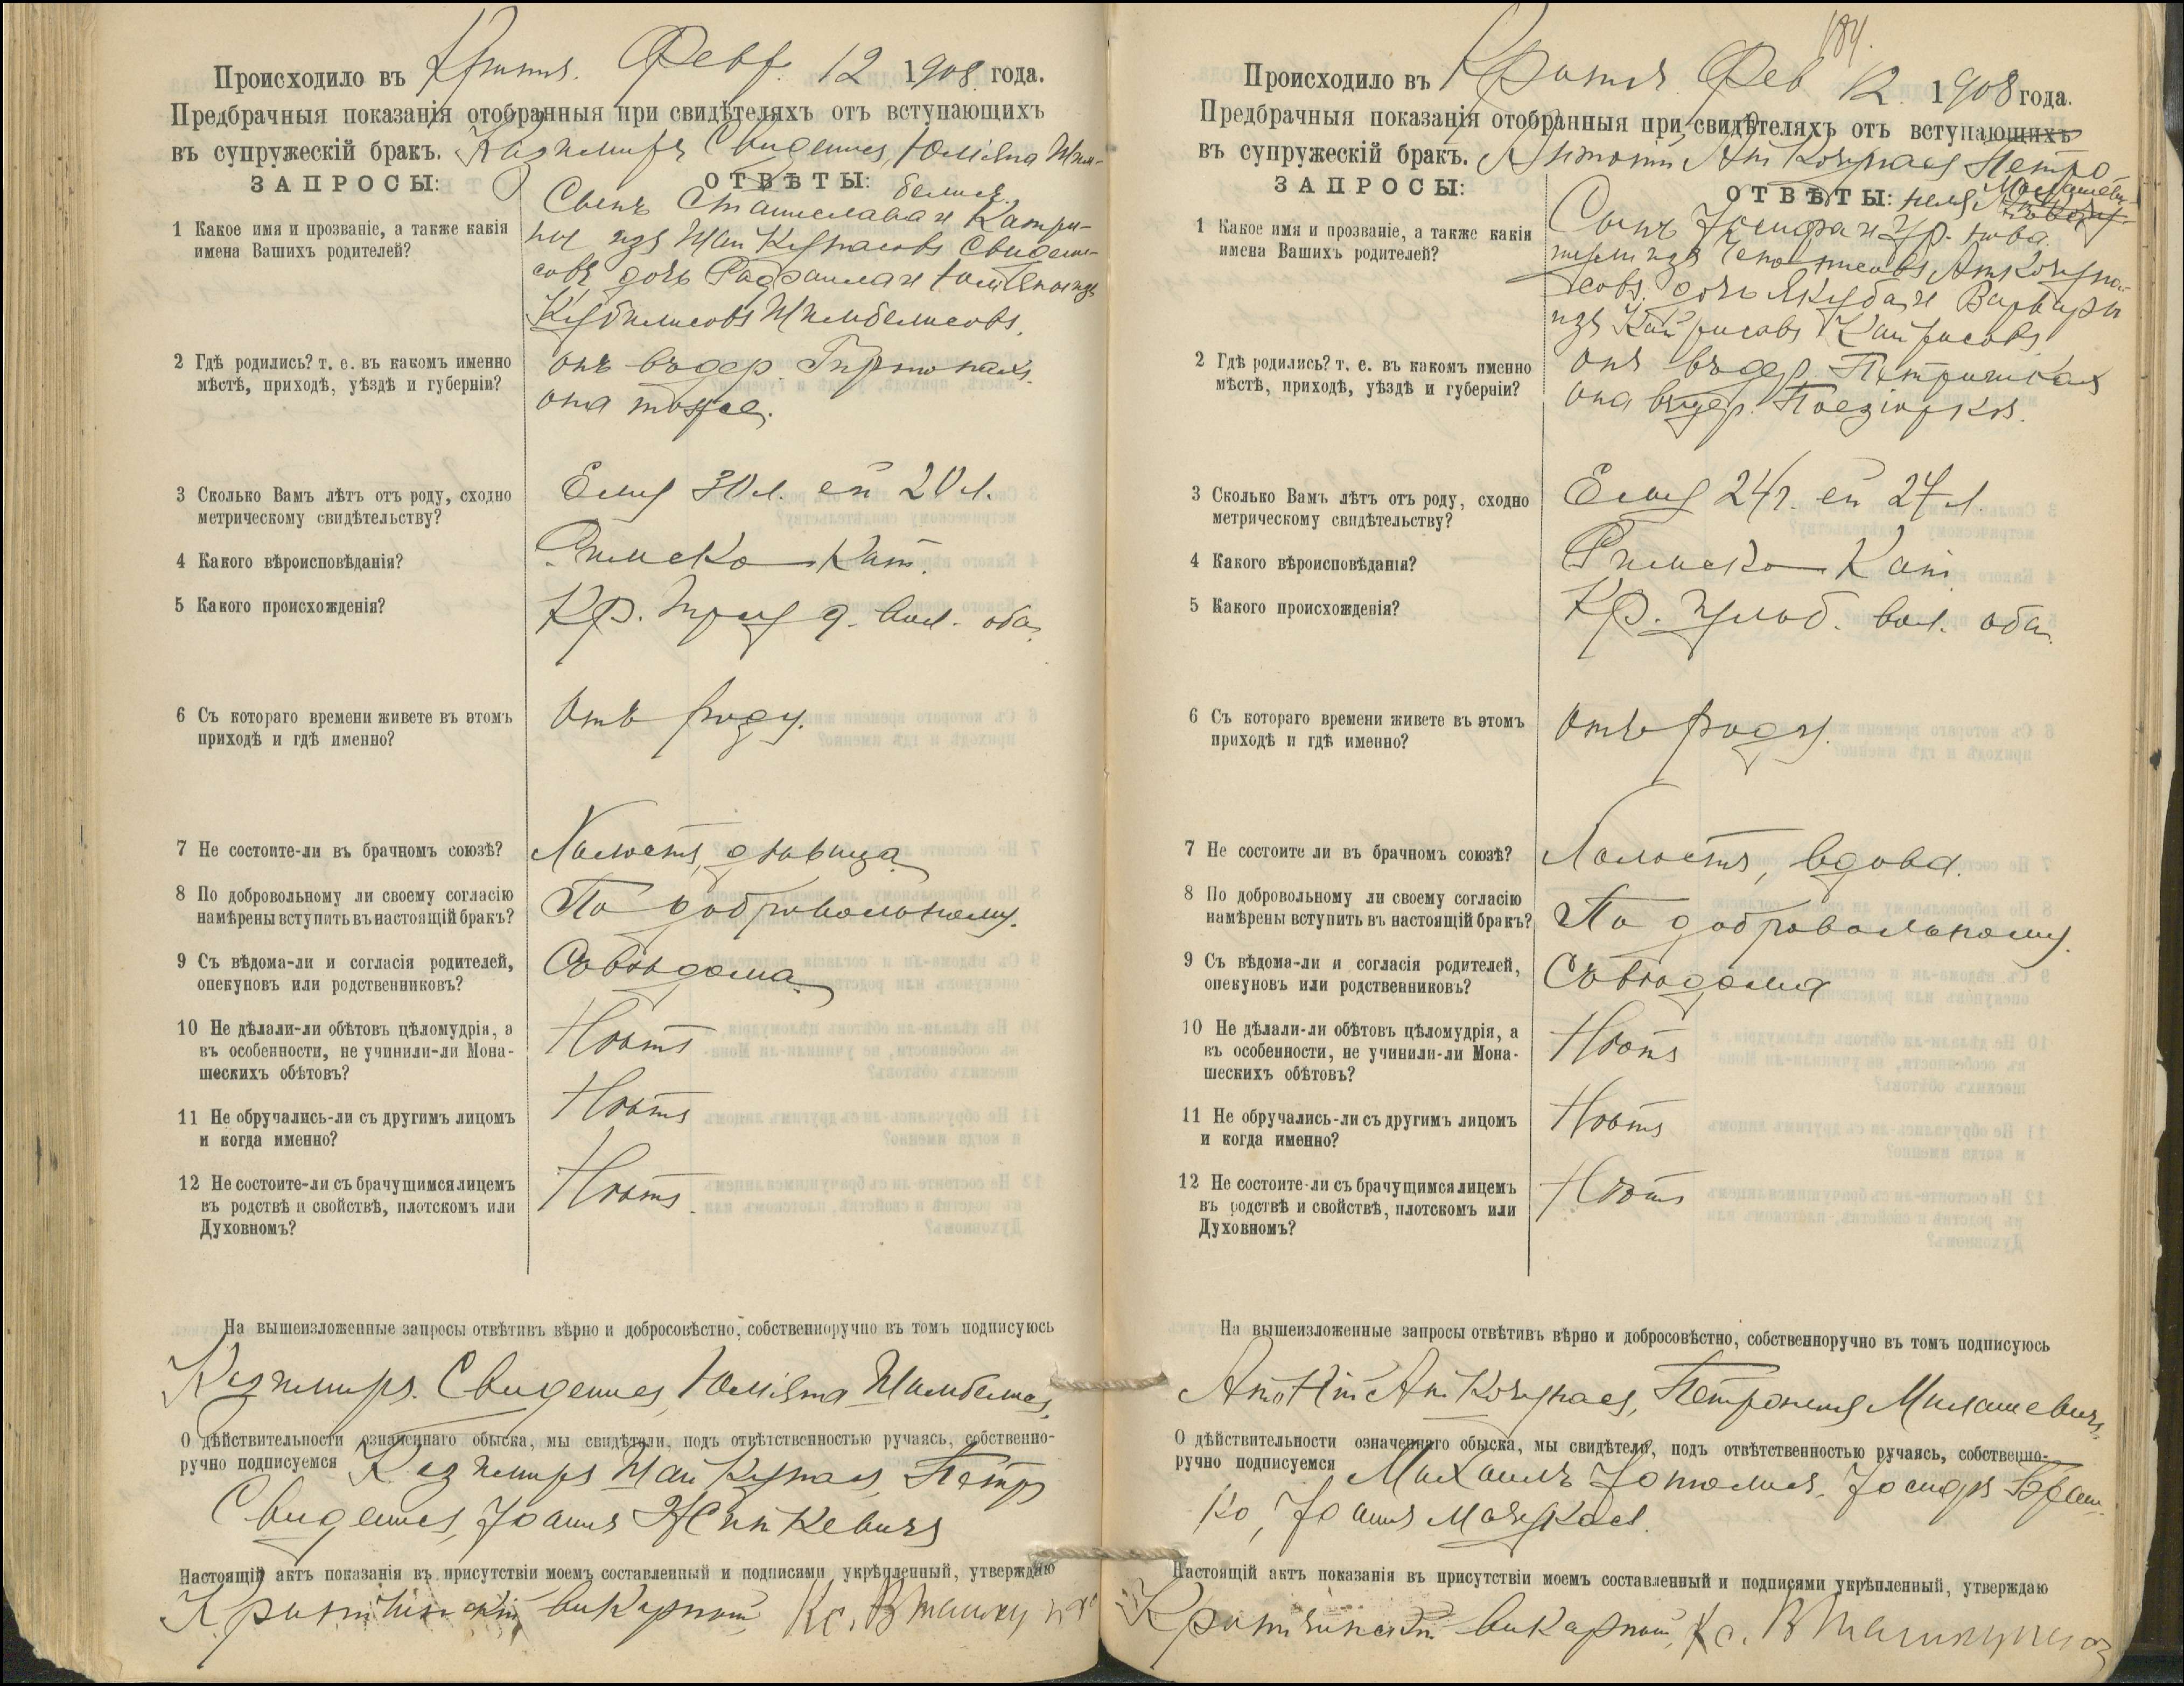 Происходило въ Кроты. Февр. 12 1908 года.
Предбрачныя показанія отобранныя при свидѣтеляхъ отъ вступающихъ
въ супружескій бракъ. Казимиръ Свиденисъ, Юліяна Шим-
ЗАПРОСЫ:
ОТВѢТЫ: белисъ.
1 Какое имя и прозваніе, а также какія
имена Вашихъ родителей?
Сынъ Станислава и Катри-
ны изъ Свидени-
совъ дочь и Юліяны изъ
2 Гдѣ родились? т. е. въ какомъ именно
мѣстѣ, приходѣ, уѣздѣ и губерніи?
Онъ въ дер.
она тоже.
3 Сколько Вамъ лѣтъ отъ роду, сходно
метрическому свидѣтельству?
Ему 30 л. ей 20 л.
4 Какого вѣроисповѣданія?
Римско-Кат.
5 Какого происхожденія?
Кр. вол. оба.
6 Съ котораго времени живете въ этомъ
приходѣ и гдѣ именно?
Отъ роду.
7 Не состоите-ли въ брачномъ союзѣ?
Холостъ, дѣвица
8 По добровольному ли своему согласію
намѣрены вступить въ настоящій бракъ?
По добровольному.
9 Съ вѣдома-ли и согласія родителей,
опекуновъ или родственниковъ?
Съ вѣдома
10 Не дѣлали-ли обѣтовъ цѣломудрія, а
въ особенности, не учинили-ли Мона-
шескихъ обѣтовъ?
Нѣтъ
11 Не обручались-ли съ другимъ лицомъ
и когда именно?
Нѣтъ
12 Не состоите-ли съ брачущимся лицемъ
въ родствѣ и свойствѣ, плотскомъ или
Духовномъ?
Нѣтъ.
На вышеизложенные запросы отвѣтивъ вѣрно и добросовѣстно, собственноручно въ томъ подписуюсь
Казимиръ Свиденисъ, Юліяна Шимбелисъ,
О дѣйствительности означеннаго обыска, мы свидѣтели, подъ отвѣтственностью ручаясь, собственно-
ручно подписуемся Казимиръ Петръ
Свиденисъ, Іоаннъ
Настоящій актъ показанія въ присутствіи моемъ составленный и подписями укрѣпленный, утверждаю
викарный Кс.
184.
Происходило въ Кроты. Фев 12. 1908 года.
Предбрачныя показанія отобранныя при свидѣтеляхъ отъ вступающихъ
въ супружескій бракъ. Антоній Петро
ЗАПРОСЫ:
ОТВѢТЫ: неля
1 Какое имя и прозваніе, а также какія
имена Вашихъ родителей?
Сынъ Іосифа и
дочь Якуба и Варвары
изъ
2 Гдѣ родились? т. е. въ какомъ именно
мѣстѣ, приходѣ, уѣздѣ и губерніи?
Онъ въ дер.
Она въ дер.
3 Сколько Вамъ лѣтъ отъ роду, сходно
метрическому свидѣтельству?
Ему 24 г. ей 27 л.
4 Какого вѣроисповѣданія?
Римско-Кат
5 Какого происхожденія?
Кр. вол. оба.
6 Съ котораго времени живете въ этомъ
приходѣ и гдѣ именно?
Отъ роду.
7 Не состоите ли въ брачномъ союзѣ?
Холостъ, вдова.
8 По добровольному ли своему согласію
намѣрены вступить въ настоящій бракъ?
По добровольному.
9 Съ вѣдома-ли и согласія родителей,
опекуновъ или родственниковъ?
Съ вѣдома
10 Не дѣлали-ли обѣтовъ цѣломудрія, а
въ особенности, не учинили-ли Мона-
шескихъ обѣтовъ?
Нѣтъ
11 Не обручались-ли съ другимъ лицомъ
и когда именно?
Нѣтъ
12 Не состоите-ли съ брачущимся лицемъ
въ родствѣ и свойствѣ, плотскомъ или
Духовномъ?
Нѣтъ
На вышеизложенные запросы отвѣтивъ вѣрно и добросовѣстно, собственноручно въ томъ подписуюсь
Антоній Петронеля Милашевичъ.
О дѣйствительности означеннаго обыска, мы свидѣтели, подъ отвѣтственностью ручаясь, собственно-
ручно подписуемся Михаилъ Іосифъ
Іоаннъ
Настоящій актъ показанія въ присутствіи моемъ составленный и подписями укрѣпленный, утверждаю
викарный Кс.